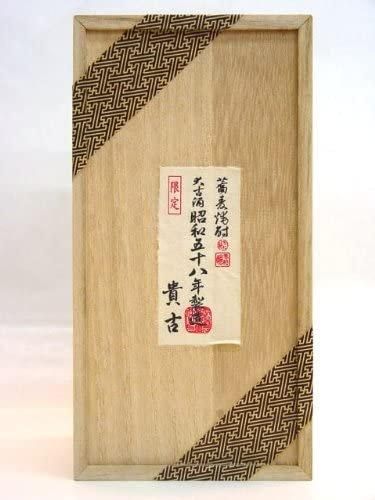 蕎麦焼酎
大古酒昭和五十八年製造
限定
貴古